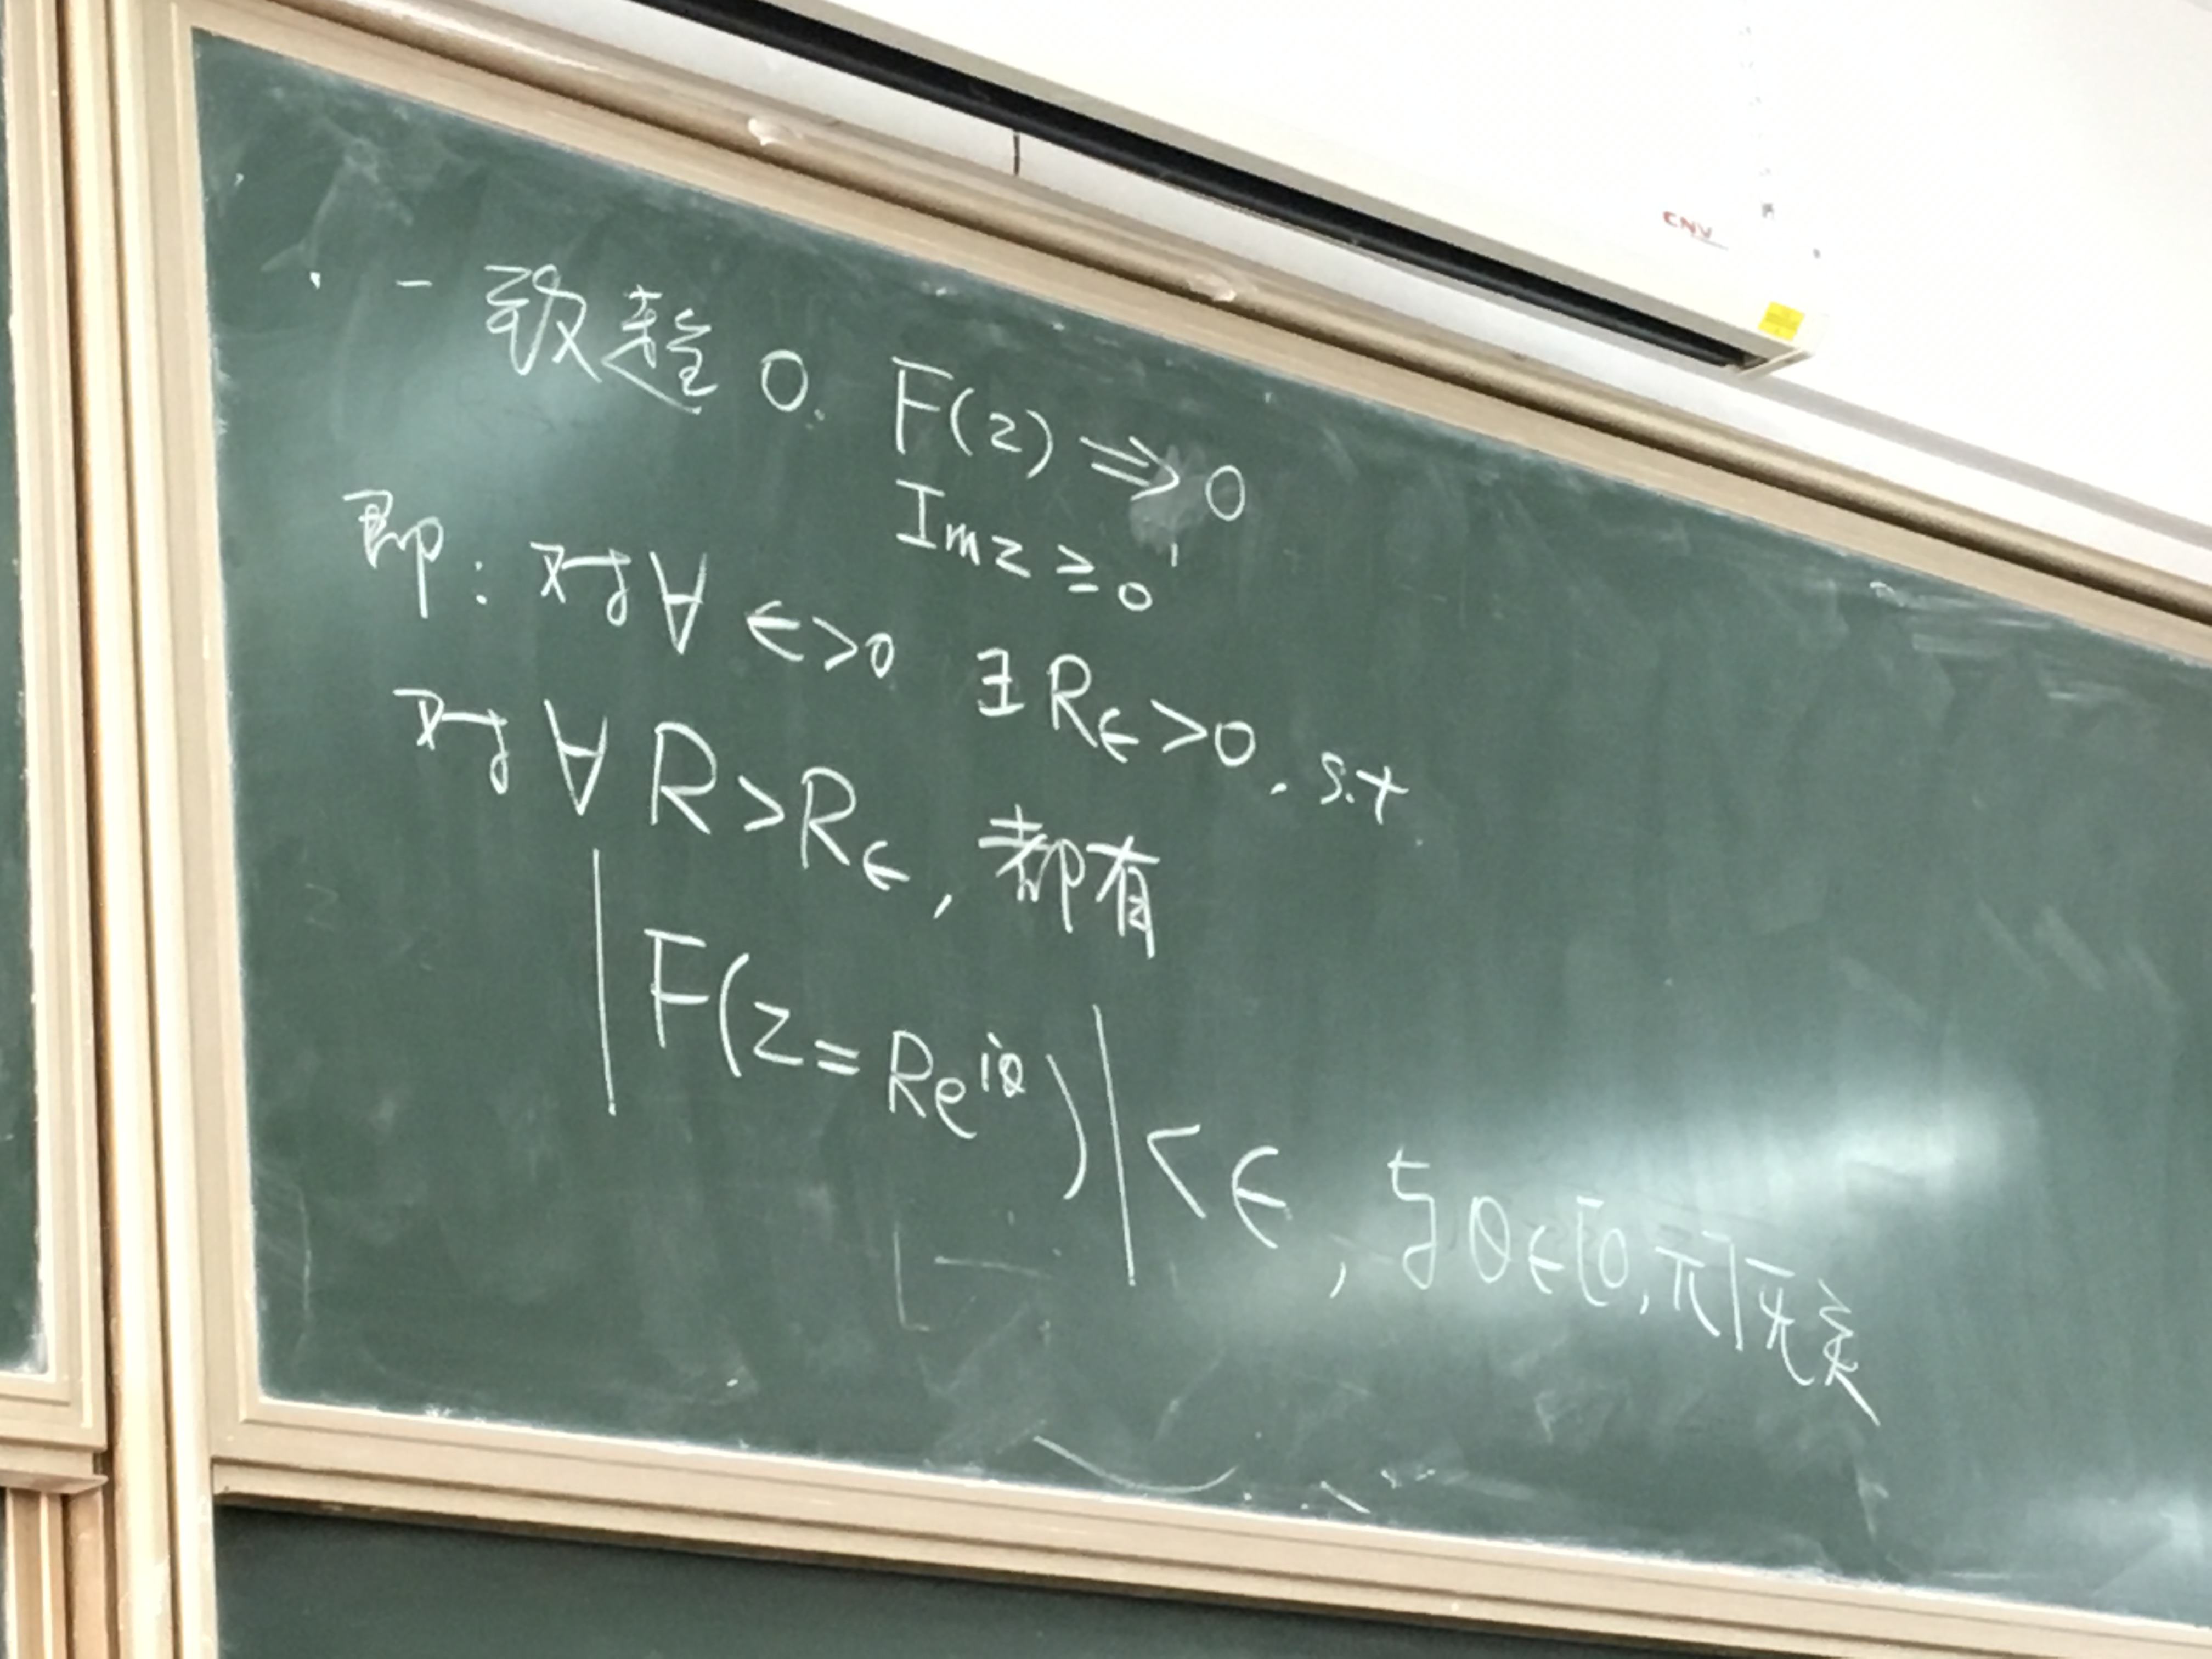 · 一致趋0. F(z) ⇒ 0
Im z ≥ 0
即: 对∀ ϵ>0 ∃ R_ϵ>0. s.t
对∀ R>R_ϵ, 都有
|F(z=Re^{iθ})|<ϵ, 与θ∈[0,π]无关
CNV